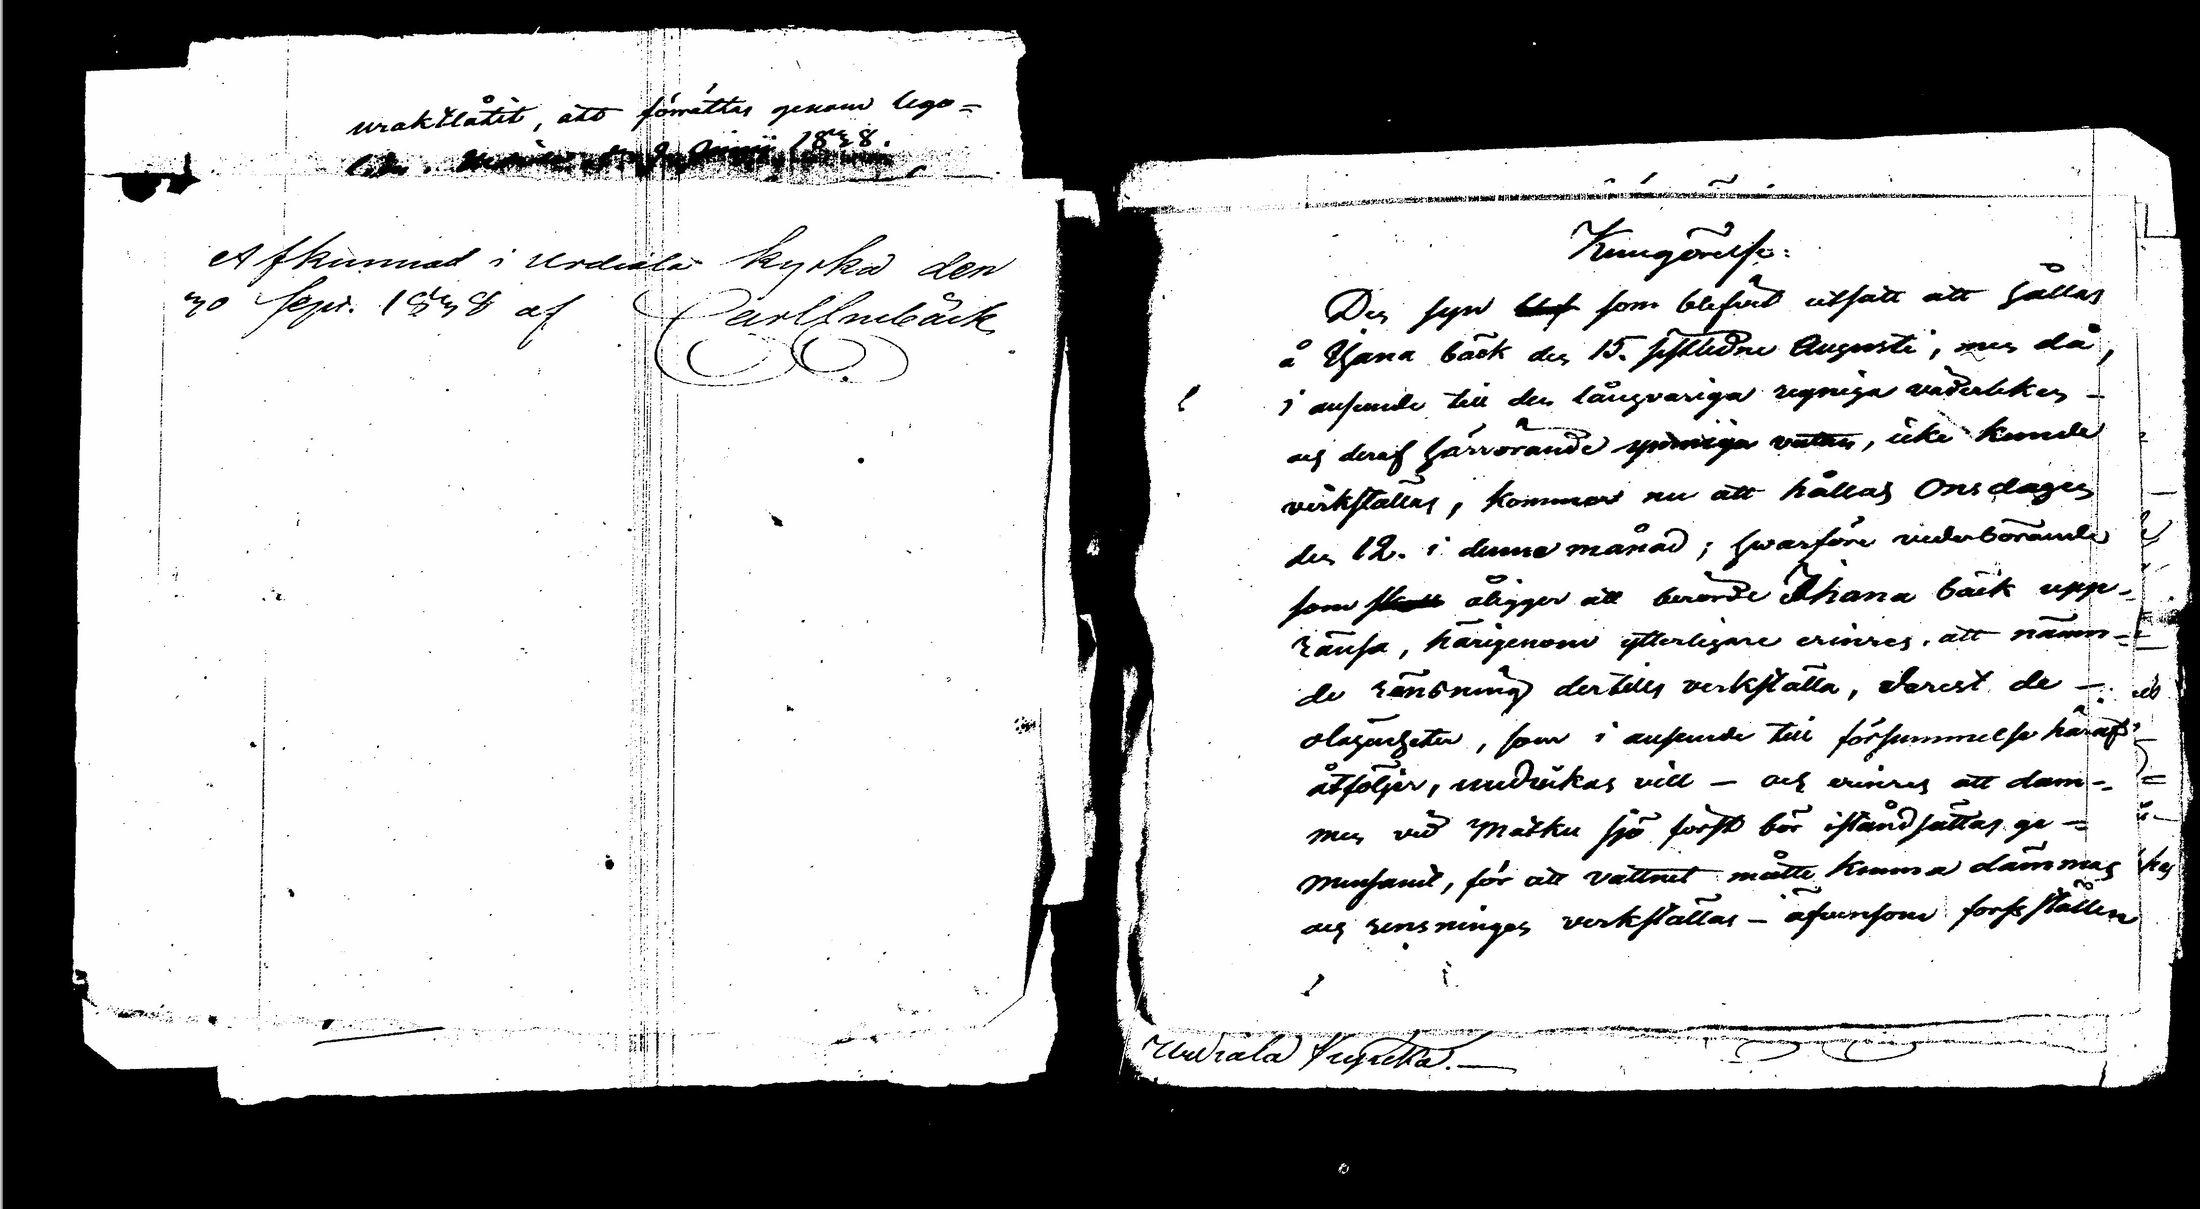 uraktlåtit, att förrättas genom lego=
1838.
Afkunnad i Urdiala kyrka den
30 Sepr. 1838 af Carl Enebäck
Kungörelse:
Den syn som blefvit utsatt att hållas
å Ihana bäck den 15. sistledne Augusti, men då,
i anseende till den långvariga regniga väderleken –
och deraf härrörande ymniga vatten, icke kunde
verkställas, kommer nu att hållas Onsdagen
den 12. i denna månad; hvarföre vederbörande
som åligger att berörde Ihana bäck upp-
ränsa, härigenom ytterligare erinres, att nämn-
de rensning dertills verkställa, derest de –
olägenheter, som i anseende till försummelse häraf
åtföljer, undvikas vill – och erinres att dam-
men vid Matku sjö först bör iståndsättas ge-
mensamt, för att vattnet måtte kunna dämmas
och rensningen verkställas – äfvensom forssställen
Urdiala Kyrcka. —